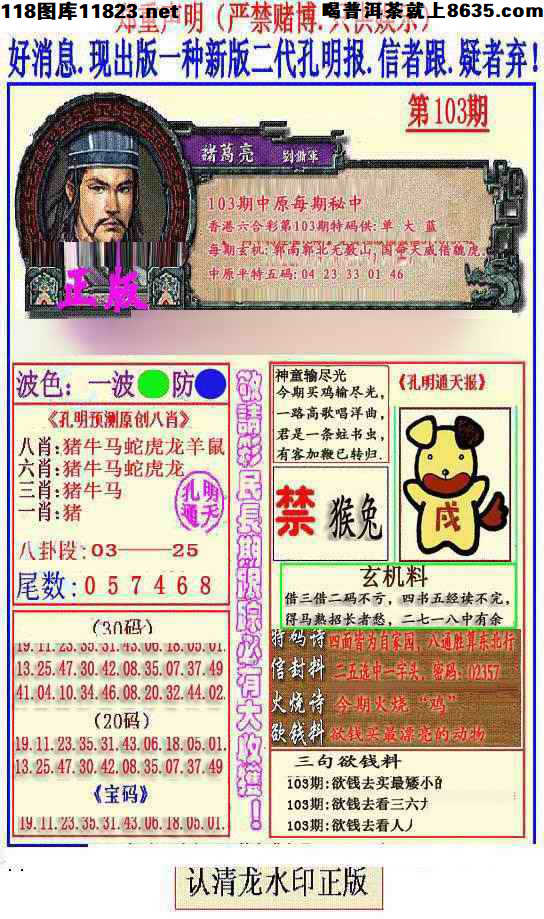 118图库11823.net
喝普洱茶就上8635.com
郑重声明（严禁赌博.只供娱乐）
好消息.现出版一种新版二代孔明报.信者跟.疑者弃！
第103期
諸葛亮
劉備軍
103期中原每期秘中
香港六合彩第103期特码供:单 大 蓝
每期玄机:郭南郭北无数山,国帝天威借魏虎.
中原平特五码:04 23 33 01 46
正版
波色：一波 防
《孔明预测原创八肖》
八肖:猪牛马蛇虎龙羊鼠
六肖:猪牛马蛇虎龙
三肖:猪牛马
一肖:猪
孔明通天
八卦段:03——25
尾数:057468
(30码)
19.11.23.35.31.43.06.18.05.01.
13.25.47.30.42.08.35.07.37.49
41.04.10.34.46.08.20.32.44.02
(20码)
19.11.23.35.31.43.06.18.05.01.
13.25.47.30.42.08.35.07.37.49
《宝码》
19.11.23.35.31.43.06.18.05.01.
敬請彩民長期跟踪必有大收獲！
神童输尽光
今期买鸡输尽光,
一路高歌唱洋曲,
君是一条蛀书虫,
有客加鞭已转归.
《孔明通天报》
禁 猴兔
戌
玄机料
借三借二码不亏，四书五经读不完,
得马熟招长者愁，二七一八中有余
特码诗 四面皆为自家园，八通胜算东北行
信封料 二五选中一字头，密码：02357
火烧诗 今期火烧“鸡”
欲钱料 欲钱买最漂亮的动物
三句欲钱料
103期:欲钱去买最矮小的
103期:欲钱去看三六
103期:欲钱去看人
认清龙水印正版